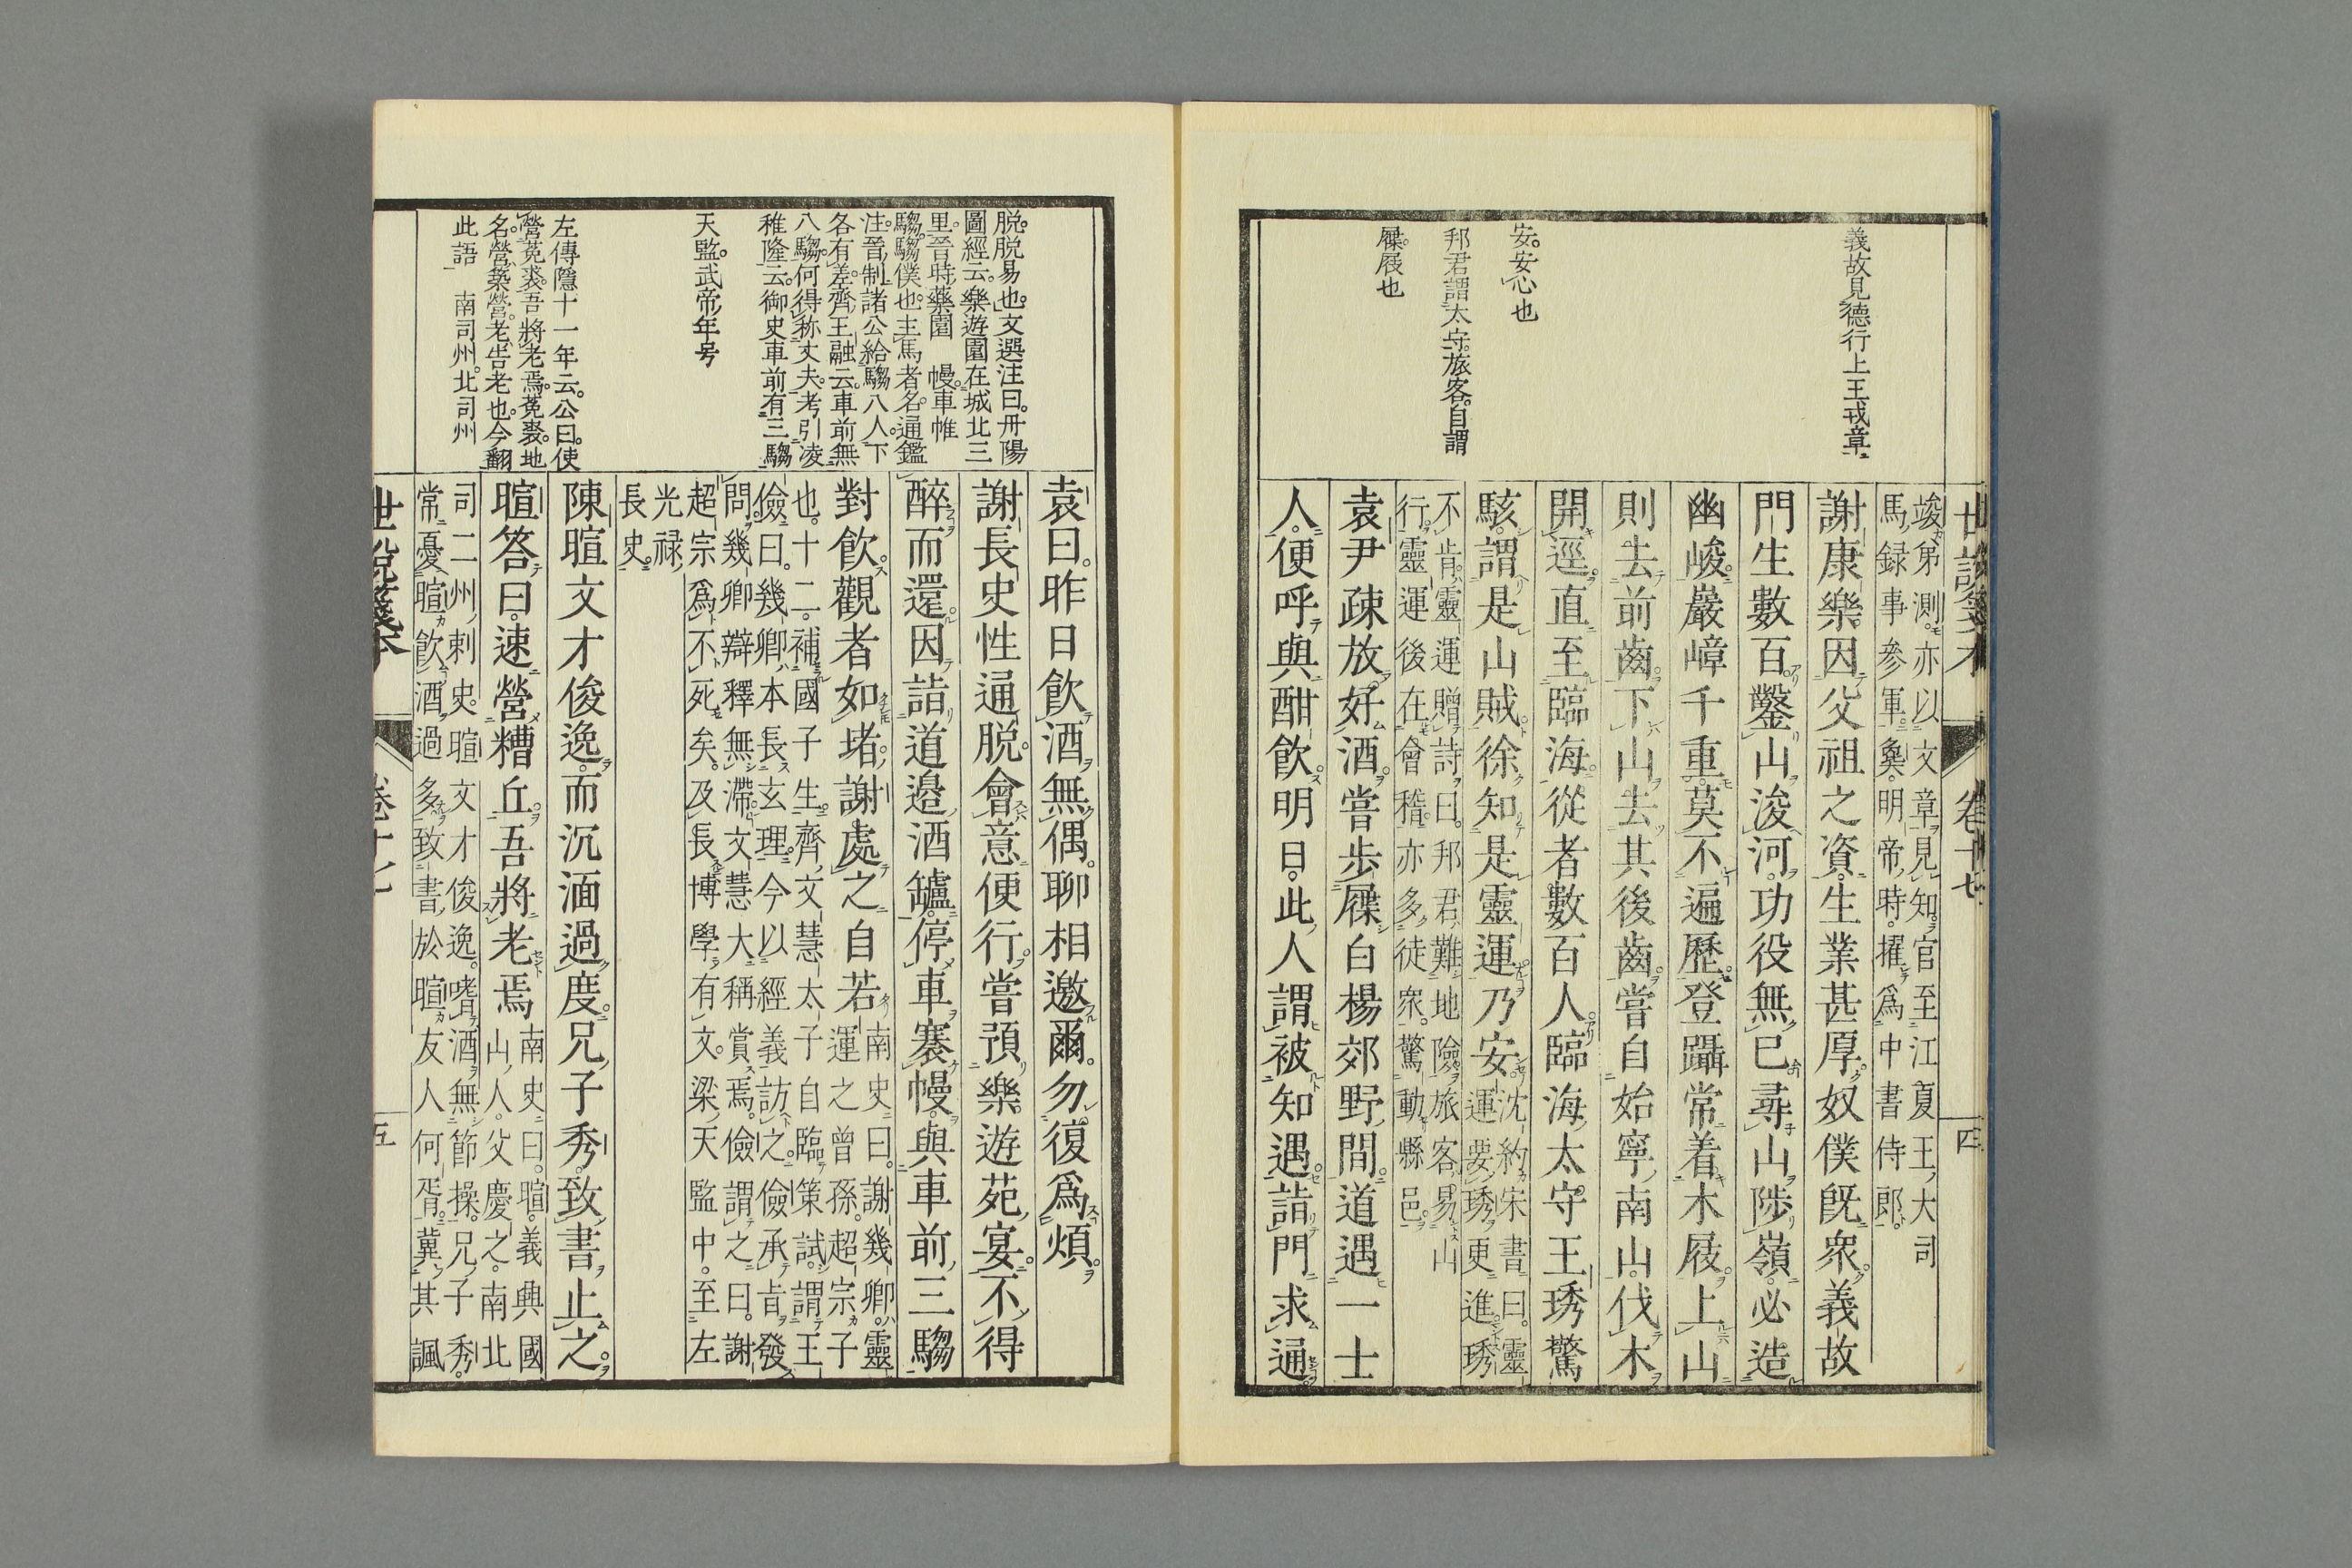 義故見德行上王戎章
安。安心也
邦君謂太守。旅客。自謂
屧。屐也
世說箋本
卷十七
四
峻弟測。亦以文章見知。官至江夏王大司
馬錄事參軍。奐。明帝時。擢爲中書侍郎。
謝康樂。因父祖之資。生業甚厚。奴僕旣衆。義故
門生數百。鑿山浚河。功役無已。尋山陟嶺。必造
幽峻。巖嶂千重。莫不遍歷。登躡常着木屐。上山
則去前齒。下山去其後齒。嘗自始寧南山。伐木
開逕。直至臨海。從者數百人。臨海太守王琇驚
駭。謂是山賊。徐知是靈運。乃安。
沈約宋書曰。靈
運要琇更進。琇
不肯。靈運贈詩曰。邦君難地險。旅客易山
行。靈運後在會稽。亦多徒衆。驚動縣邑。
袁尹疎放好酒。嘗步屧白楊郊野間。道遇一士
人。便呼與酣飮。明日。此人謂被知遇。詣門求通。
脱。脱易也。文選注曰。丹陽
圖經云。樂遊園在城北三
里。晉時藥園　幔。車帷
騶。騶僕也。主馬者名。通鑑
注。晉制諸公給騶八人。下
各有差。齊王融云。車前無
八騶。何得称丈夫。考引凌
稚隆云。御史車前有三騶
天監。武帝年号
左傳隱十一年云。公曰。使
營菟裘。吾將老焉。菟裘。地
名。營。築營。老。告老也。今翻
此語　南司州。北司州
袁曰。昨日飮酒無偶。聊相邀爾。勿復爲煩。
謝長史性通脱。會意便行。嘗預樂遊苑宴。不得
醉而還。因詣道邉酒罏。停車褰幔。與車前三騶
對飮。觀者如堵。謝處之自若。
南史曰。謝幾卿。靈
運之曾孫。超宗子
也。十二。補國子生。齊文慧太子自臨策試。謂王
儉曰。幾卿本長玄理。今以經義訪之。儉承旨發
問。幾卿辯釋無滯。文慧大稱賞焉。儉謂之曰。謝
超宗爲不死矣。及長博學有文。梁天監中。至左
光祿
長史。
陳暄文才俊逸。而沉湎過度。兄子秀。致書止之。
暄答曰。速營糟丘。吾將老焉
南史曰。暄。義興國
山人。父慶之。南北
司二州刺史。暄文才俊逸。嗜酒無節操。兄子秀。
常憂暄飮酒過多。致書於暄友人何胥。冀其諷
世說箋本
卷十七
五